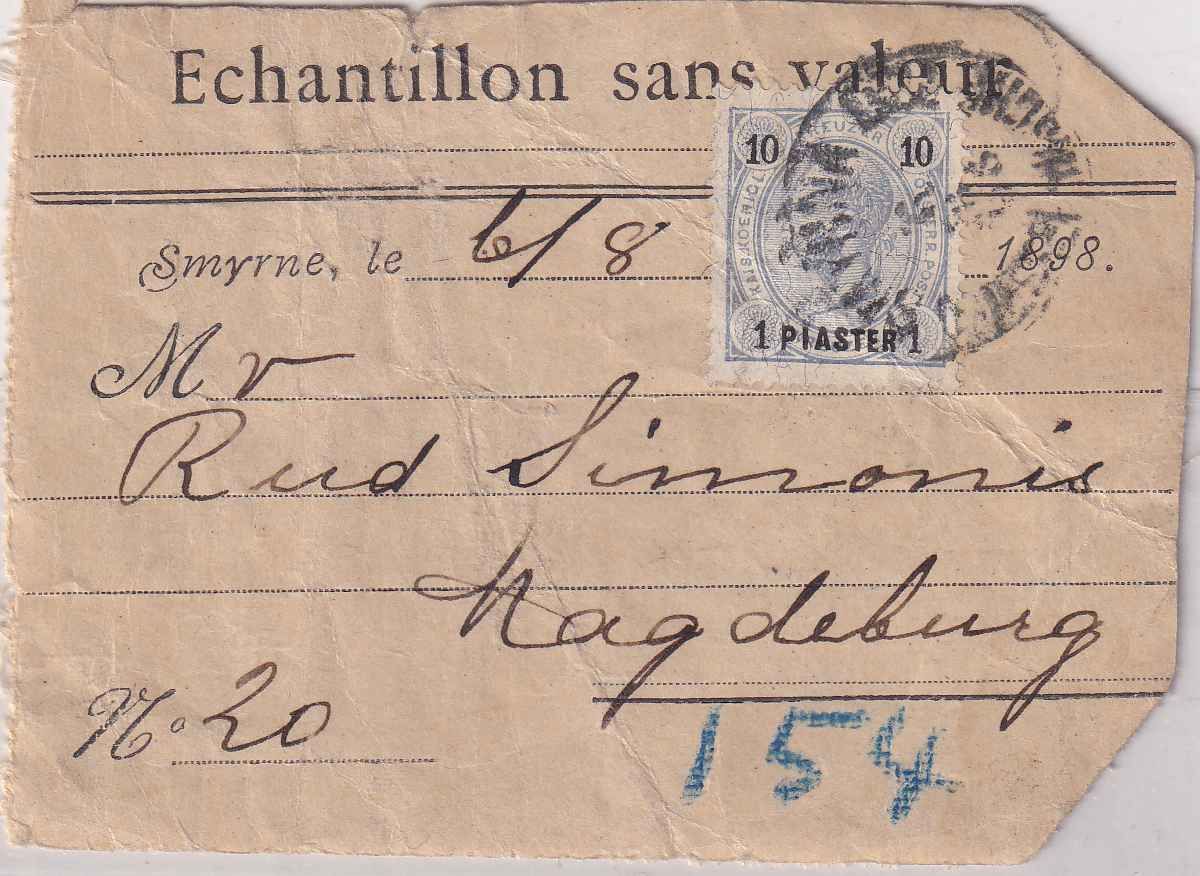 Echantillon sans valeur
Smyrne, le 6/8 1898.
10 KREUZER 10
KAIS. KOENIGL. OESTERR. POST
1 PIASTER 1
Mr
Rud Simonis
Magdeburg
No. 20
154